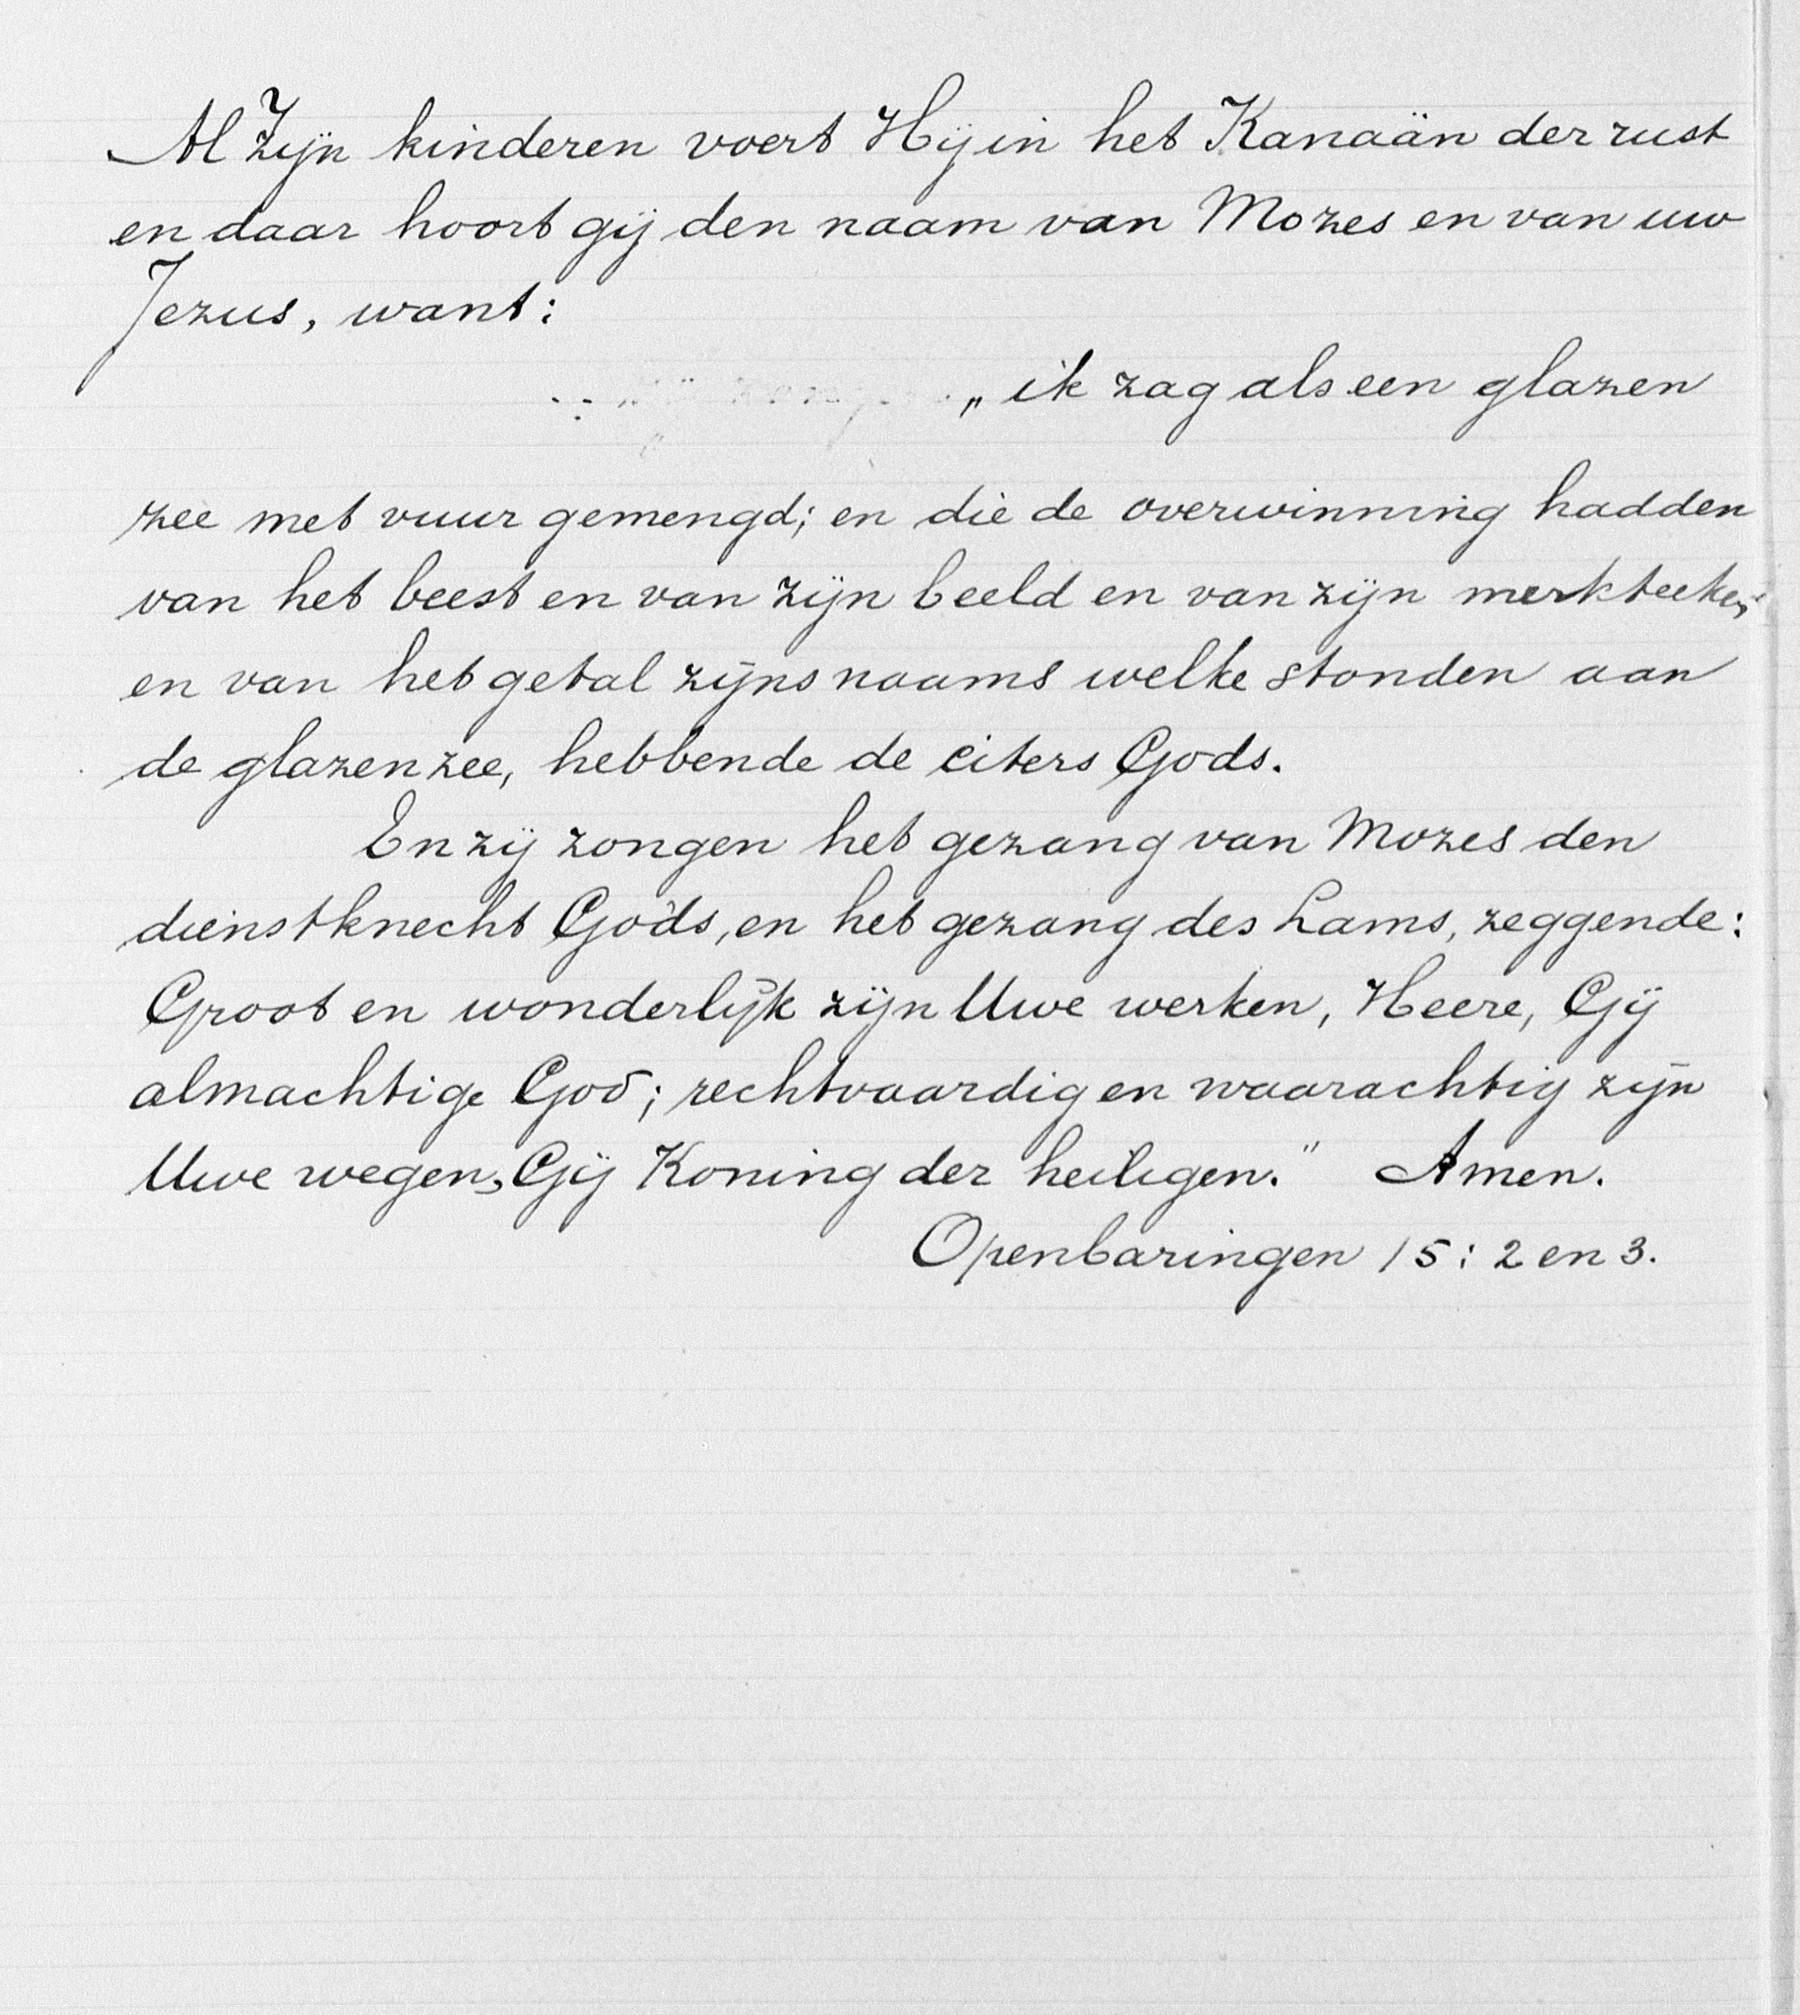 Al Zijn kinderen voert Hij in het Kanaän der rust
en daar hoort gij den naam van Mozes en van uw
Jezus, want:
„ik zag als een glazen
zee met vuur gemengd; en die de overwinning hadden
van het beest en van zijn beeld en van zijn merkteeken,
en van het getal zijns naams welke stonden aan
de glazen zee, hebbende de citers Gods.
En zij zongen het gezang van Mozes den
dienstknecht Gods, en het gezang des Lams, zeggende:
Groot en wonderlijk zijn Uwe werken, Heere, Gij
almachtige God; rechtvaardig en waarachtig zijn
Uwe wegen, Gij Koning der heiligen." Amen.
Openbaringen 15: 2 en 3.